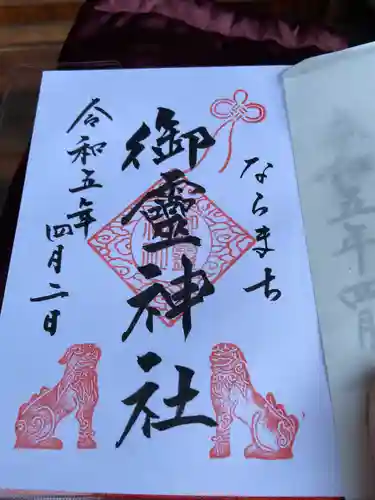 ならまち
御靈神社
令和五年
四月二日